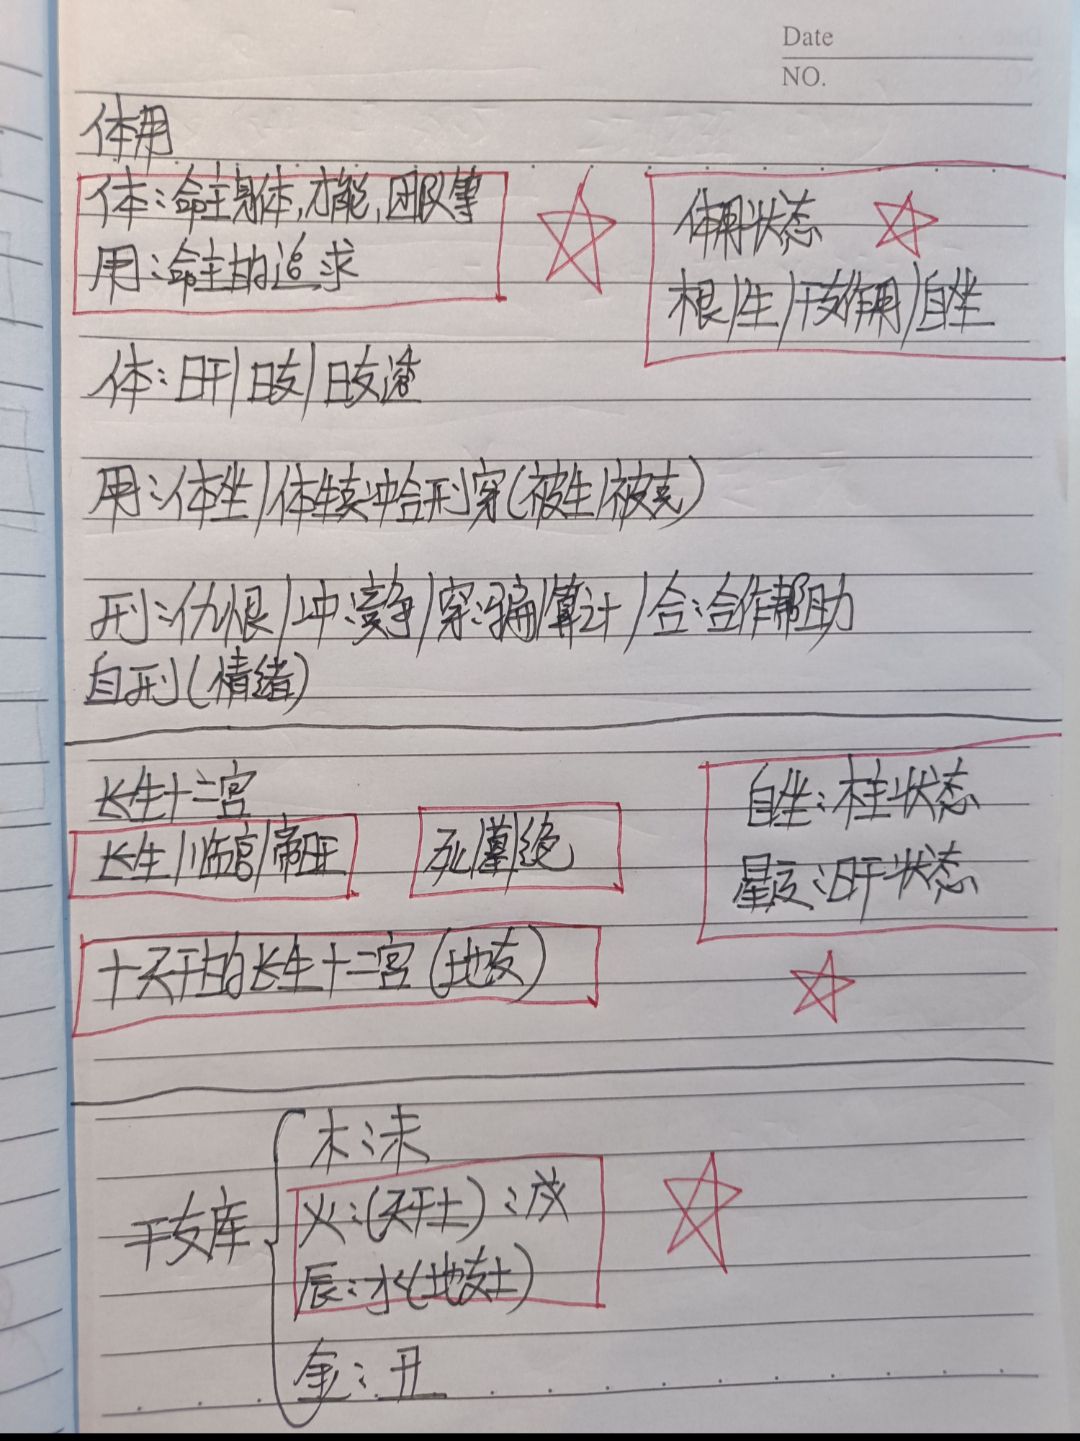 Date
NO.
体用
体:命主身体,才能,团队等
用:命主的追求
体用状态
根/生/干支作用/自坐
体:日干/日支/日支透
用:体坐/体生克冲合刑穿(被生/被克)
刑:仇恨/冲:竞争/穿:骗/算计/合:合作帮助
自刑(情绪)
长生十二宫
长生/临官/帝旺
死/墓/绝
自坐:本柱状态
星运:日干状态
十天干的长生十二宫(地支)
干支库
木:未
火:(天干土):戌
辰:水(地支土)
金:丑